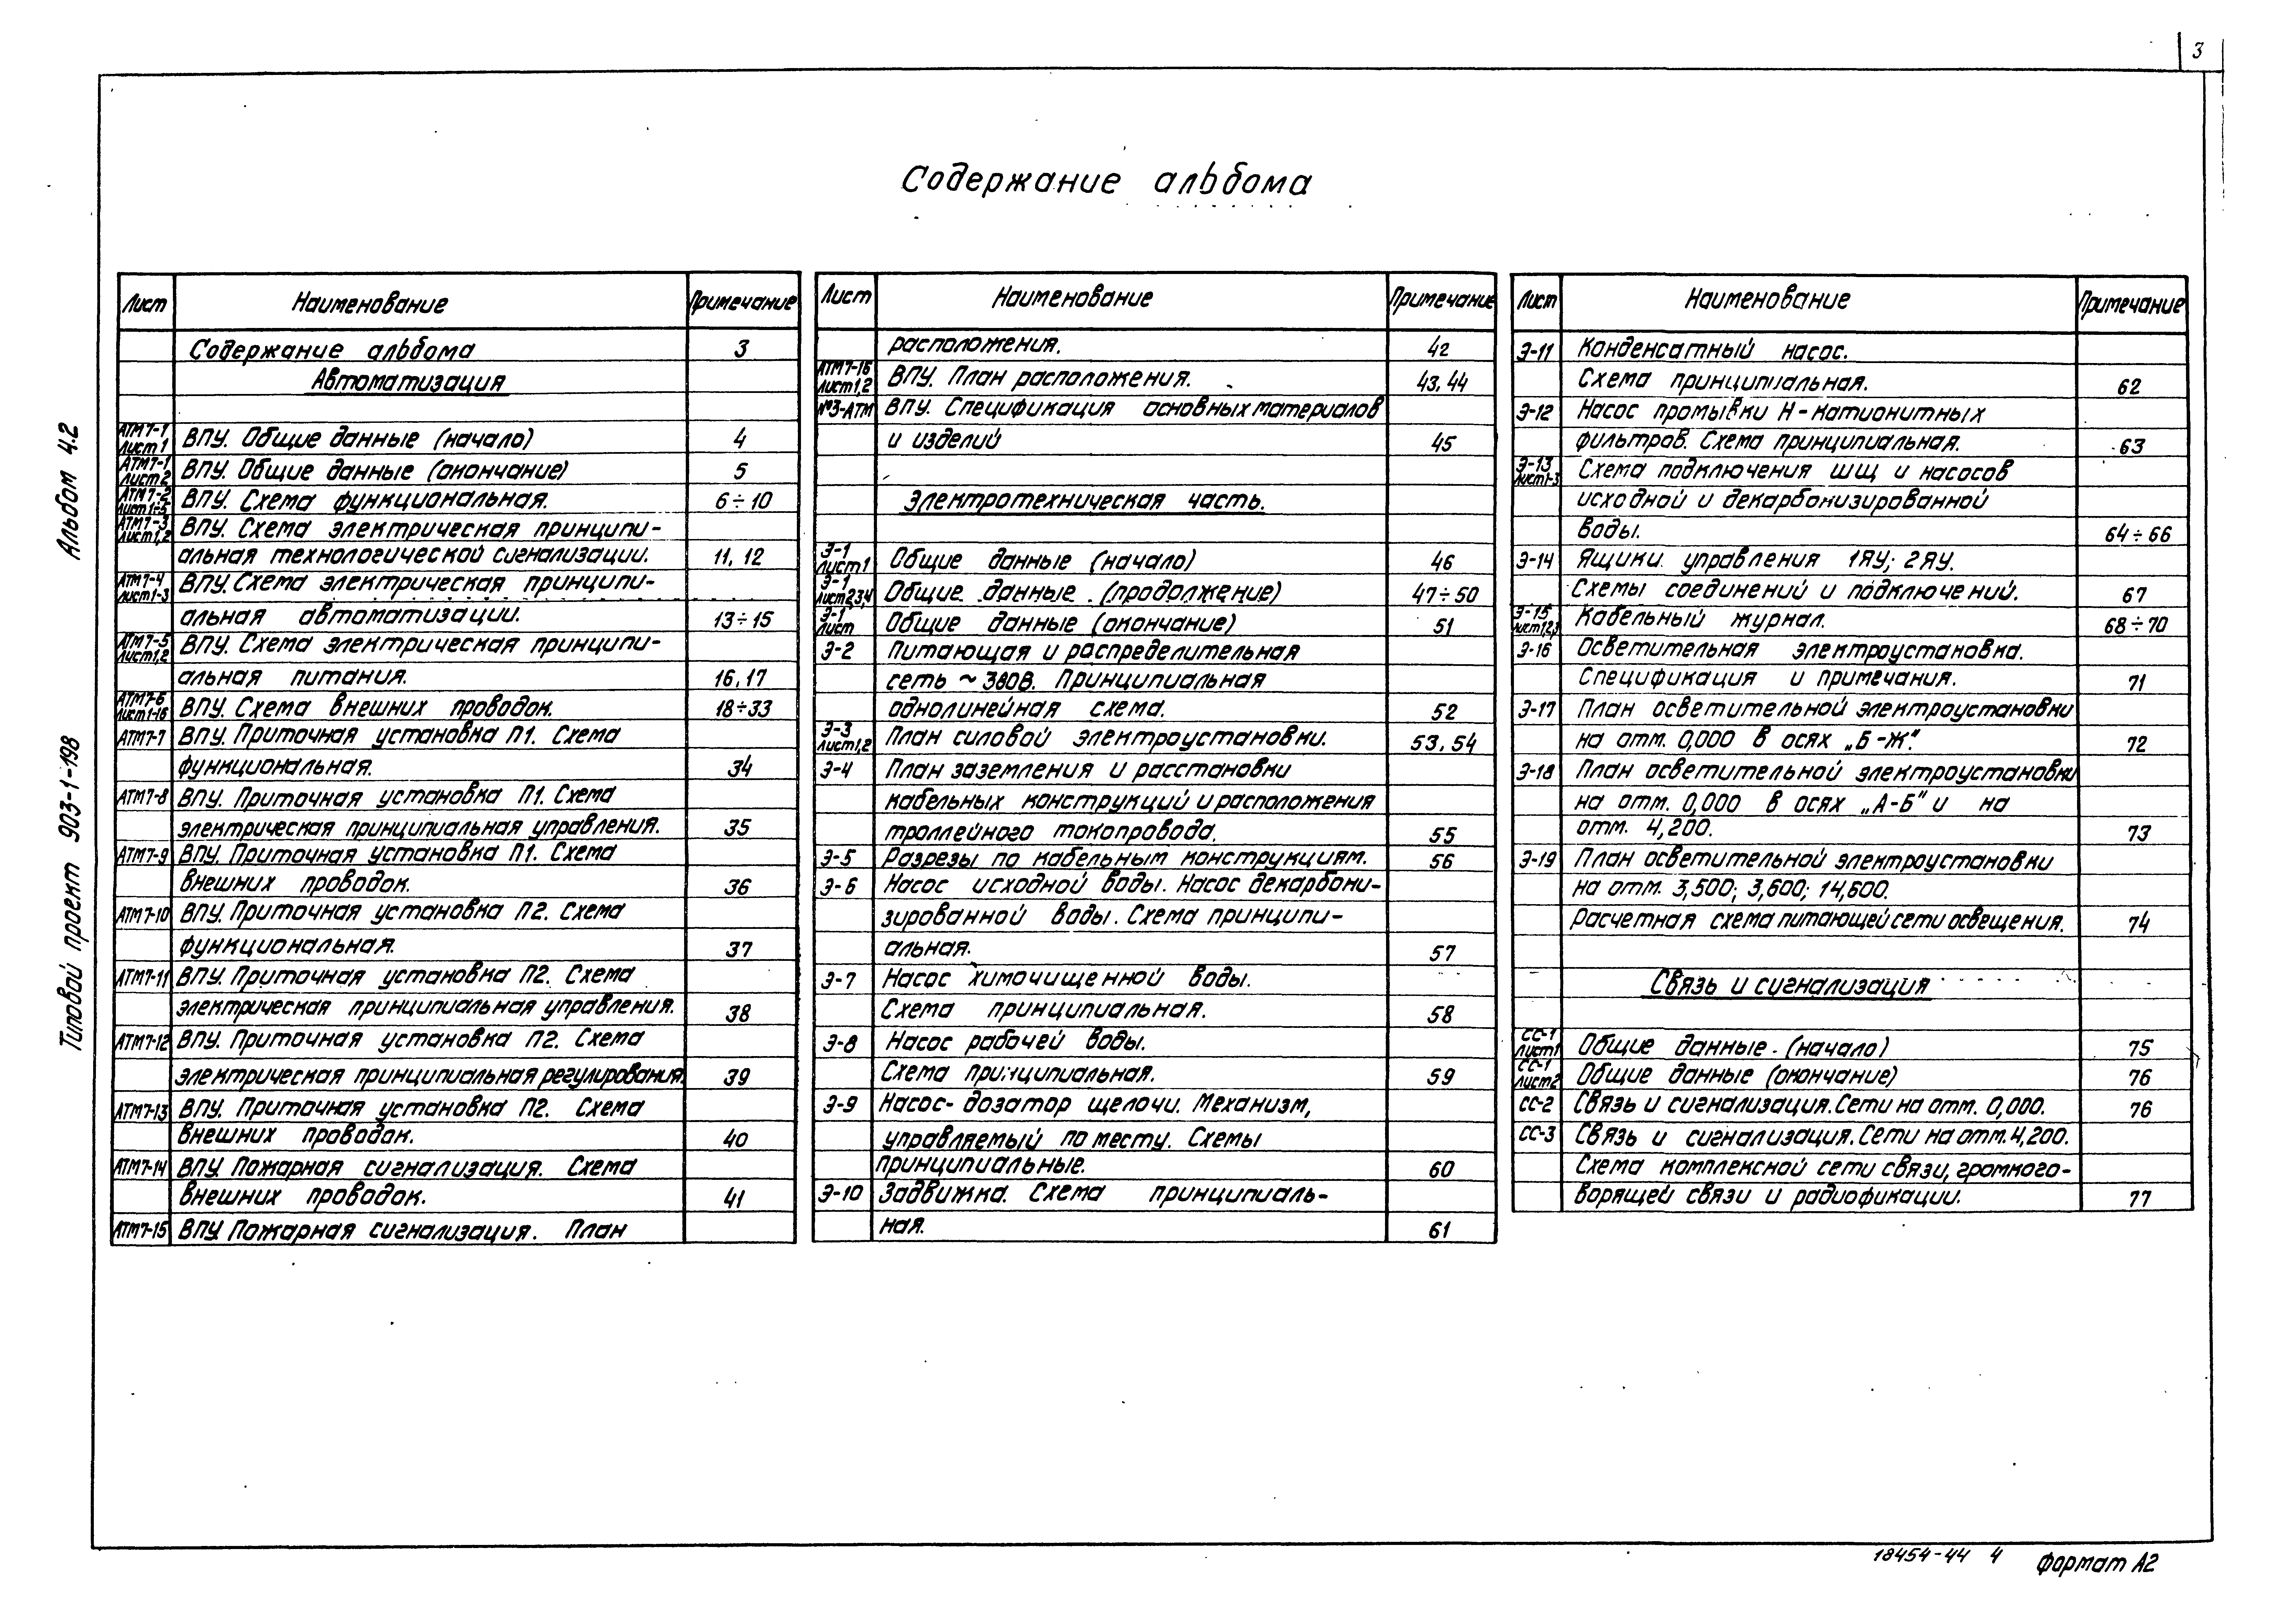 3
Содержание альбома
Альбом 4.2
Типовой проект 903-1-198
Лист Наименование Примечание
Содержание альбома 3
Автоматизация
АТМ7-1 Лист 1 ВПУ. Общие данные (начало) 4
АТМ7-1 Лист 2 ВПУ. Общие данные (окончание) 5
АТМ7-2 Лист 1-5 ВПУ. Схема функциональная. 6÷10
АТМ7-3 Лист 1,2 ВПУ. Схема электрическая принципи-
альная технологической сигнализации. 11, 12
АТМ7-4 лист 1-3 ВПУ. Схема электрическая принципи-
альная автоматизации. 13÷15
АТМ7-5 Лист 1,2 ВПУ. Схема электрическая принципи-
альная питания. 16, 17
АТМ7-6 Лист 1-16 ВПУ. Схема внешних проводок. 18÷33
АТМ7-7 ВПУ. Приточная установка П1. Схема
функциональная. 34
АТМ7-8 ВПУ. Приточная установка П1. Схема
электрическая принципиальная управления. 35
АТМ7-9 ВПУ. Приточная установка П1. Схема
внешних проводок. 36
АТМ7-10 ВПУ. Приточная установка П2. Схема
функциональная. 37
АТМ7-11 ВПУ. Приточная установка П2. Схема
электрическая принципиальная управления. 38
АТМ7-12 ВПУ. Приточная установка П2. Схема
электрическая принципиальная регулирования. 39
АТМ7-13 ВПУ. Приточная установка П2. Схема
внешних проводок. 40
АТМ7-14 ВПУ Пожарная сигнализация. Схема
внешних проводок. 41
АТМ7-15 ВПУ Пожарная сигнализация. План
Лист Наименование Примечание
расположения. 42
АТМ7-16 Лист 1,2 ВПУ. План расположения. 43, 44
№3-АТМ ВПУ. Спецификация основных материалов
и изделий 45
Электротехническая часть.
Э-1 Лист 1 Общие данные (начало) 46
Э-1 Лист 2,3,4 Общие данные (продолжение) 47÷50
Э-1 Лист Общие данные (окончание) 51
Э-2 Питающая и распределительная
сеть ~ 380В. Принципиальная
однолинейная схема. 52
Э-3 Лист 1,2 План силовой электроустановки. 53, 54
Э-4 План заземления и расстановки
кабельных конструкций и расположения
троллейного токопровода. 55
Э-5 Разрезы по кабельным конструкциям. 56
Э-6 Насос исходной воды. Насос декарбони-
зированной воды. Схема принципи-
альная. 57
Э-7 Насос химочищенной воды.
Схема принципиальная. 58
Э-8 Насос рабочей воды.
Схема принципиальная. 59
Э-9 Насос-дозатор щелочи. Механизм,
управляемый по месту. Схемы
принципиальные. 60
Э-10 Задвижка. Схема принципиаль-
ная. 61
Лист Наименование Примечание
Э-11 Конденсатный насос.
Схема принципиальная. 62
Э-12 Насос промывки Н-катионитных
фильтров. Схема принципиальная. 63
Э-13 Лист 1-3 Схема подключения ШЩ и насосов
исходной и декарбонизированной
воды. 64÷66
Э-14 Ящики управления 1ЯУ; 2ЯУ.
Схемы соединений и подключений. 67
Э-15 Лист 1,2,3 Кабельный журнал. 68÷70
Э-16 Осветительная электроустановка.
Спецификация и примечания. 71
Э-17 План осветительной электроустановки
на отм. 0,000 в осях „Б-Ж". 72
Э-18 План осветительной электроустановки
на отм. 0,000 в осях „А-Б" и на
отм. 4,200. 73
Э-19 План осветительной электроустановки
на отм. 3,500; 3,600; 14,600.
Расчетная схема питающей сети освещения. 74
Связь и сигнализация
СС-1 Лист 1 Общие данные. (начало) 75
СС-1 Лист 2 Общие данные (окончание) 76
СС-2 Связь и сигнализация. Сети на отм. 0,000. 76
СС-3 Связь и сигнализация. Сети на отм. 4,200.
Схема комплексной сети связи, громкого-
ворящей связи и радиофикации. 77
18454-44 4 Формат А2